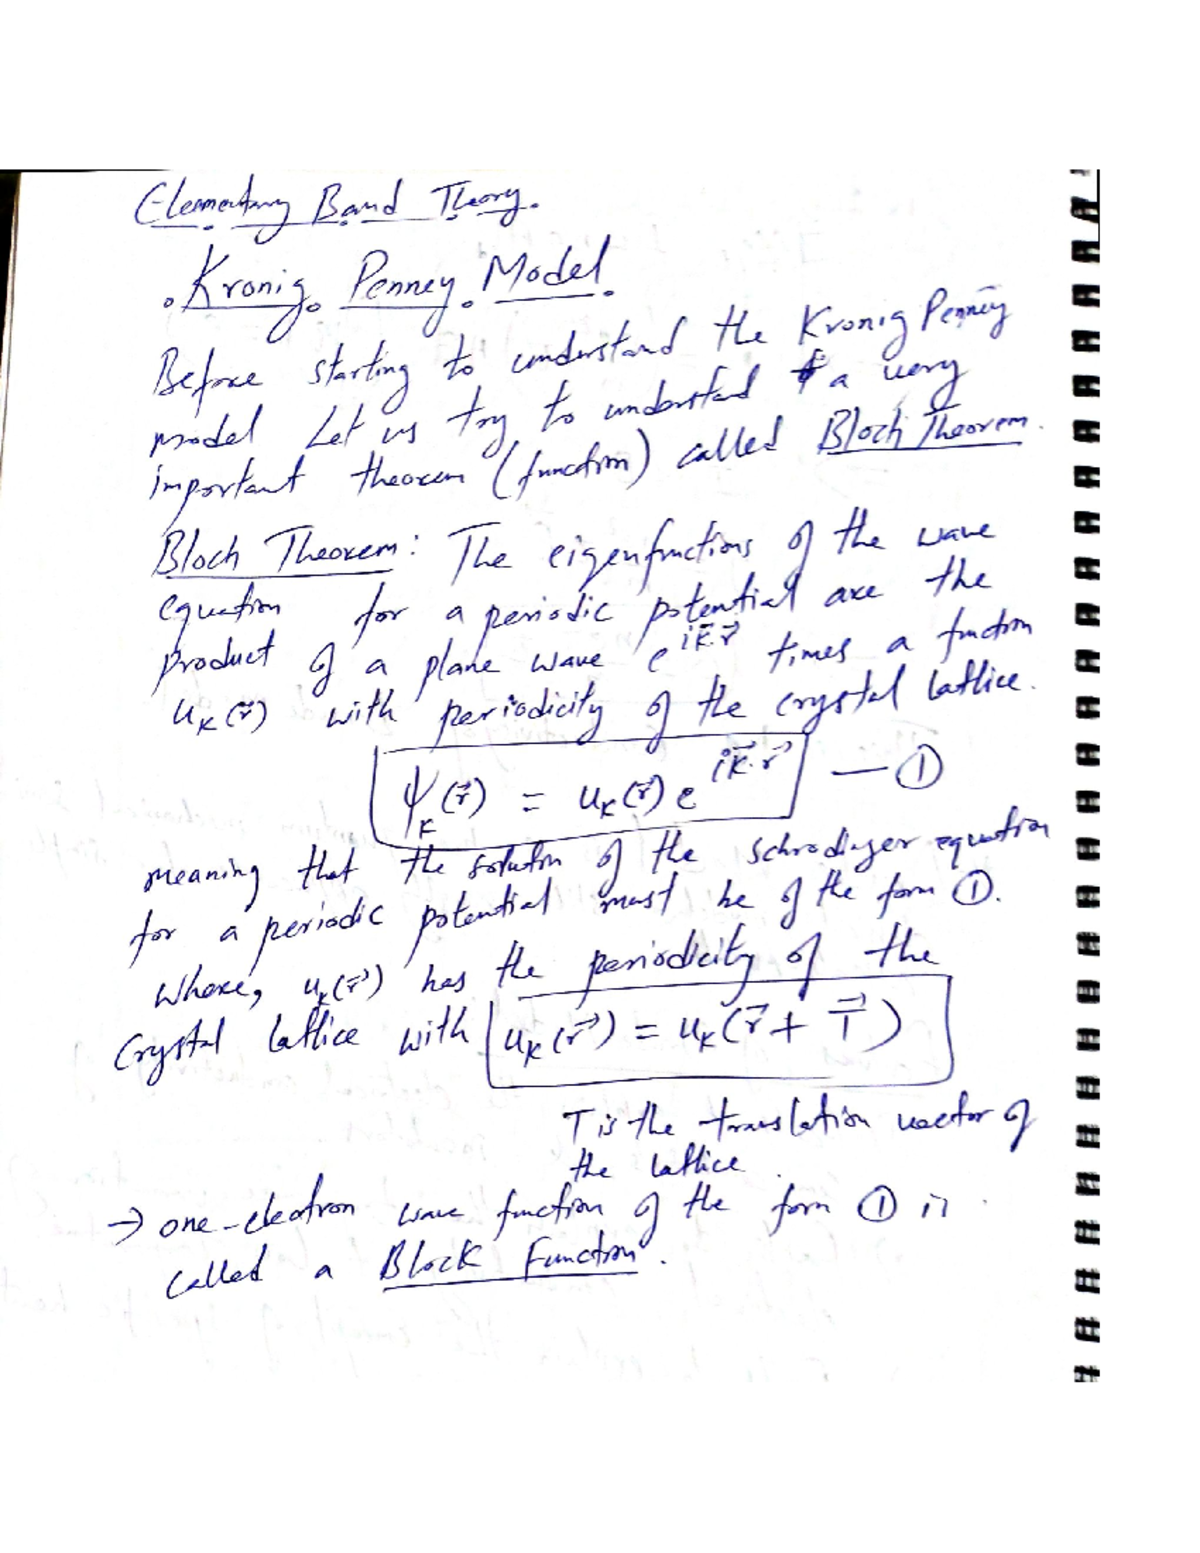 Elementary Band Theory.
Kronig Penney Model.
Before starting to understand the Kronig Penney
model Let us try to understand a very
important theorem (function) called Bloch Theorem.
Bloch Theorem: The eigenfunctions of the wave
equation for a periodic potential are the
product of a plane wave e^{i\vec{k}.\vec{r}} times a function
u_k(\vec{r}) with periodicity of the crystal lattice.
ψ_k(\vec{r}) = u_k(\vec{r}) e^{i\vec{k}.\vec{r}} — ①
meaning that the solution of the schrodinger equation
for a periodic potential must be of the form ①.
where, u_k(\vec{r}) has the periodicity of the
Crystal lattice with u_k(\vec{r}) = u_k(\vec{r} + \vec{T})
T is the translation vector of
the lattice.
→ one-electron wave function of the form ① is
called a Block Function.